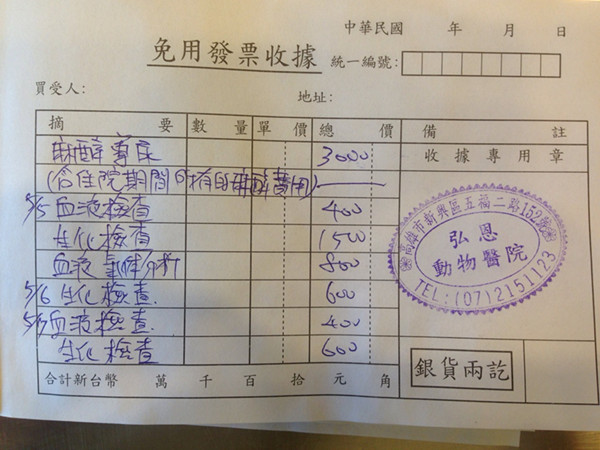 中華民國 年 月 日
免用發票收據 統一編號:
買受人: 地址:
摘要 數量 單價 總價 備註
麻醉 3000 收據專用章
(含住院期間所有的麻醉費用)
5/5 血液檢查 400
生化檢查 1500
血液氣體分析 800
5/6 生化檢查. 600
5/7 血液檢查. 400
生化檢查 600
高雄市新興區五福二路152號
弘恩
動物醫院
TEL:(07)2151123
銀貨兩訖
合計新台幣 萬 千 百 拾 元 角